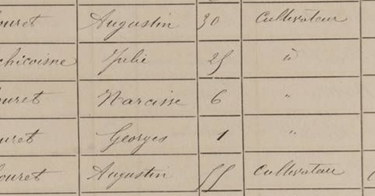 ouret Augustin 30 Cultivateur
chicoisne Julie 25 "
ouret Narcisse 6 "
ouret Georges 1 "
ouret Augustin 55 Cultivateur